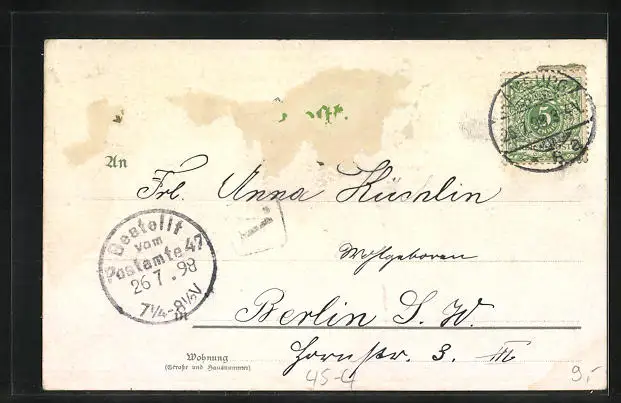 5
An
Frl. Anna Küchlin
Bestellt
vom
Postamte 47
26 7. 98
7¼-8½V
Wohlgeboren
in
Berlin S. W.
Wohnung
(Straße und Hausnummer)
Hornstr. 3. III
45-4
9,-